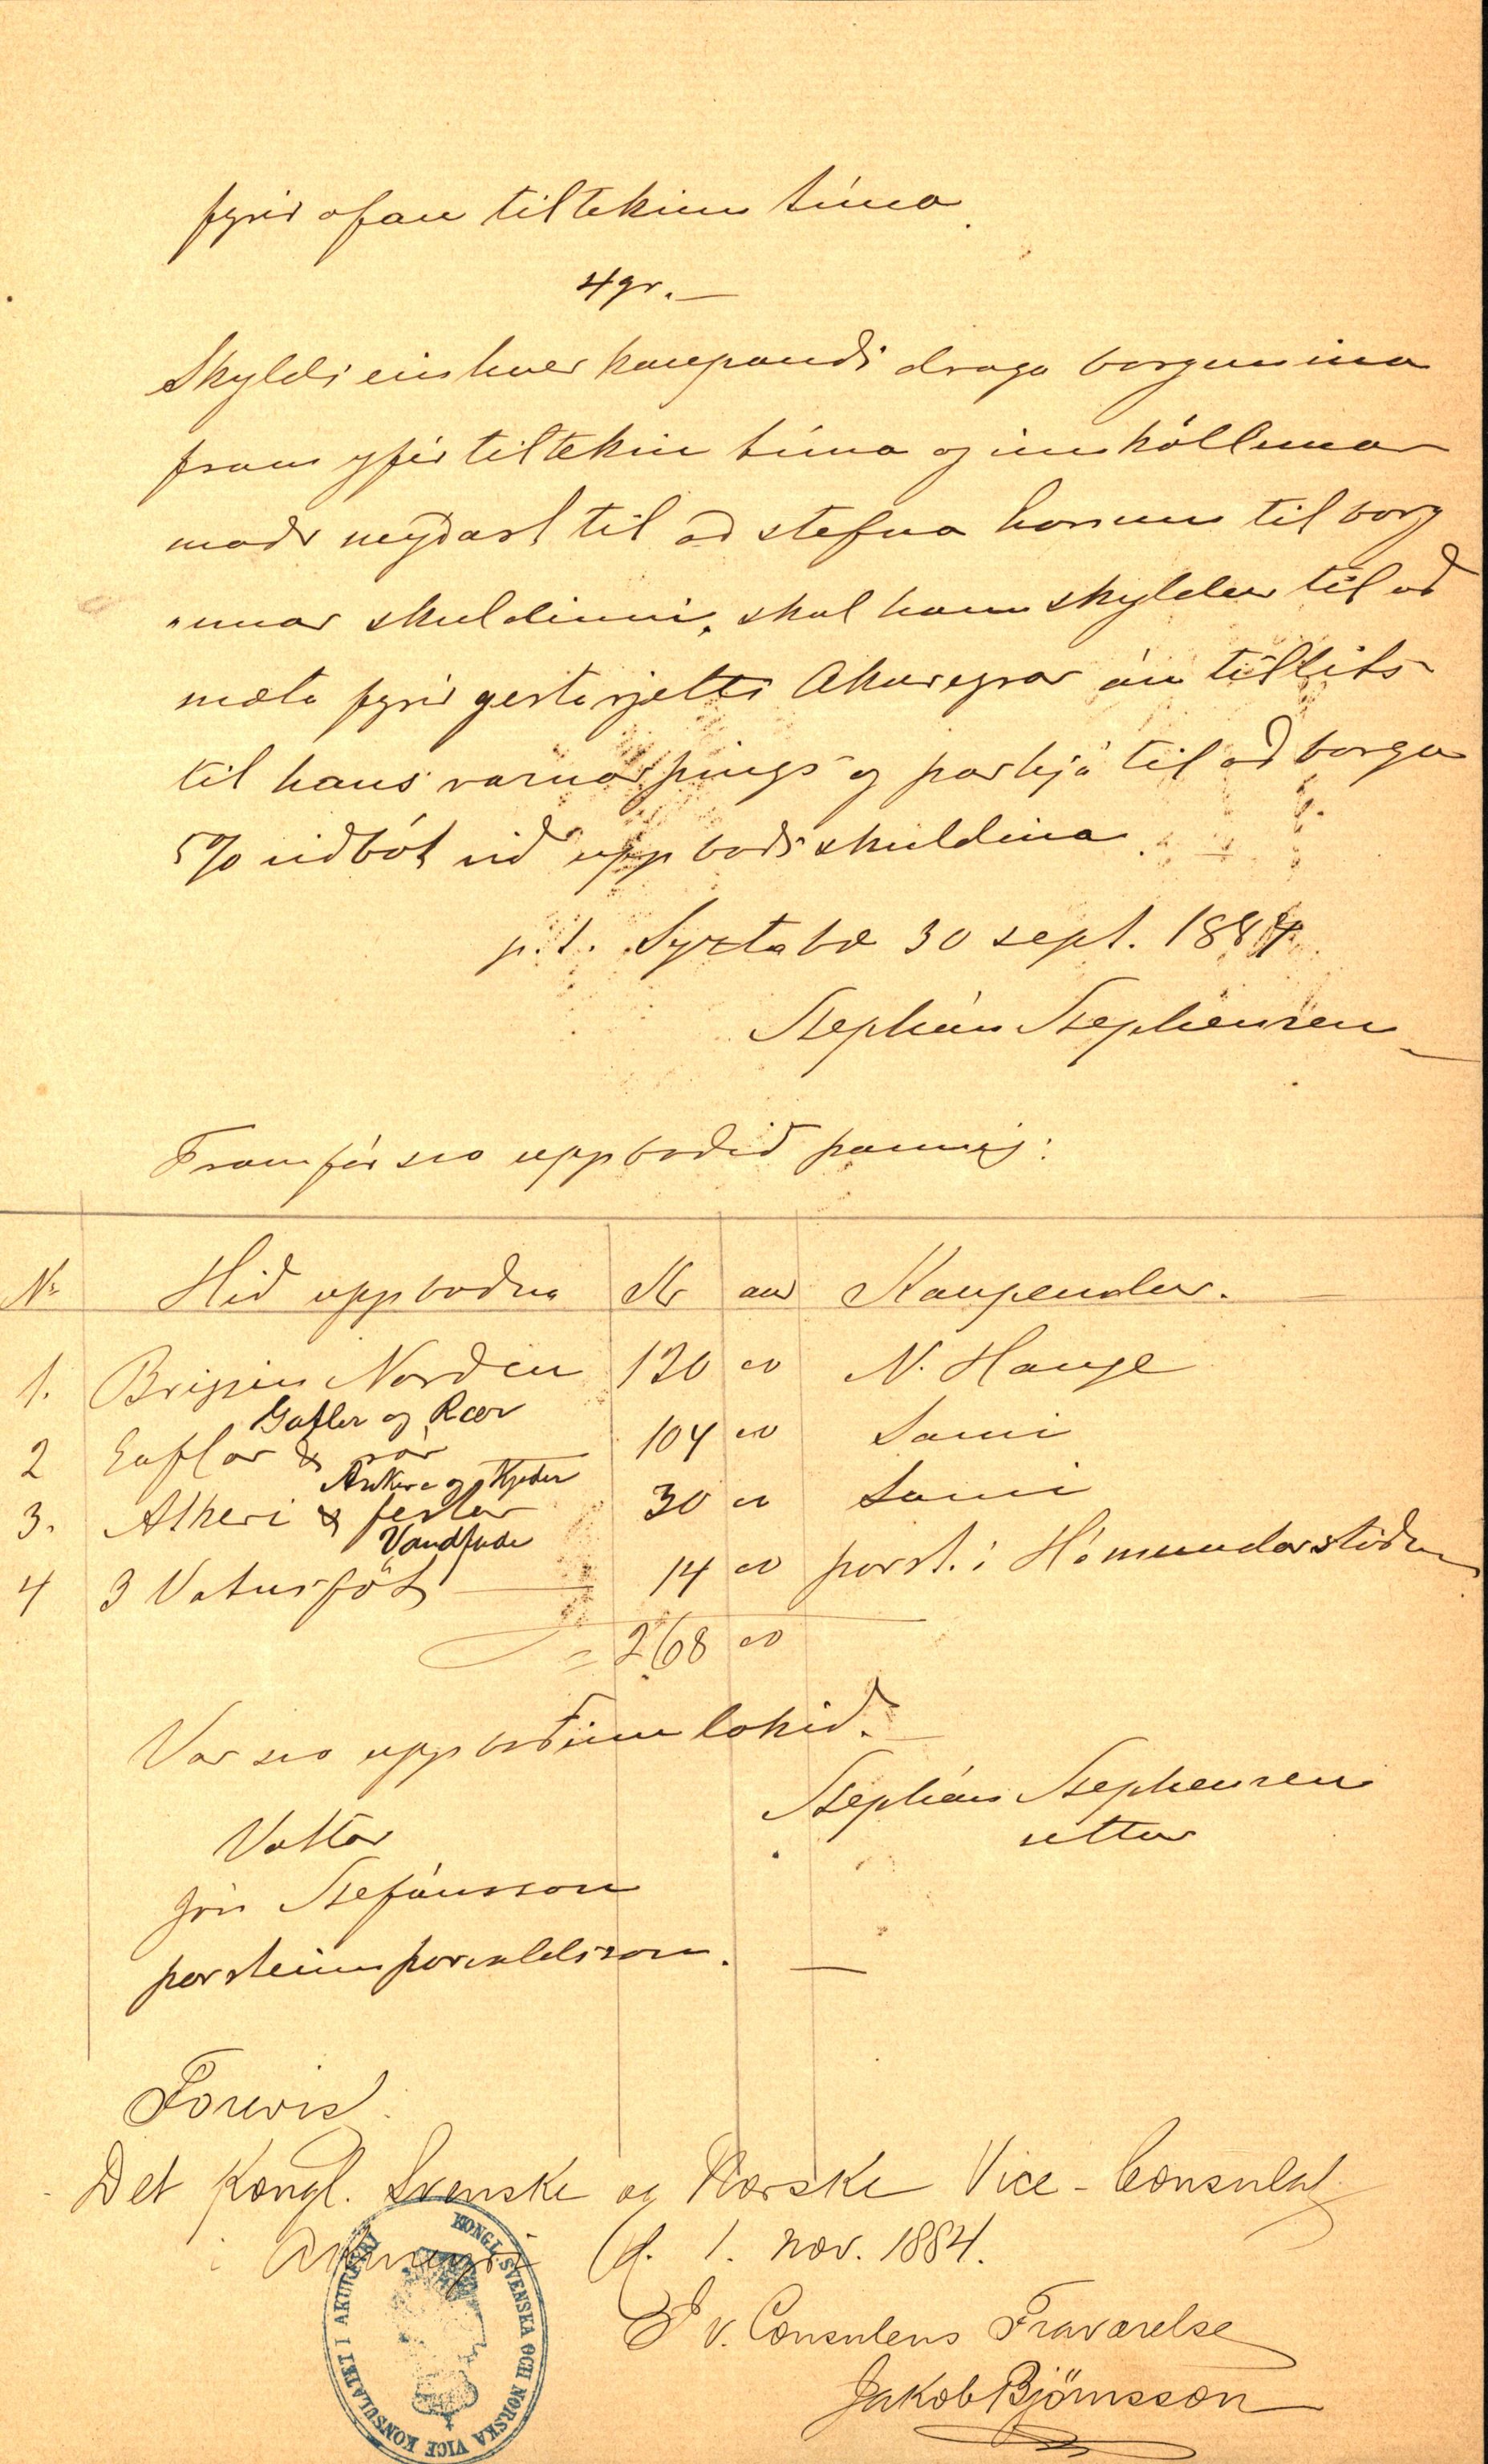 fyrir ofan tiltekinn tíma.
4 gr. —
Skyldi einhver kaupandi draga borgun sína
fram yfir tiltekin tíma og innköllunar
maðr neyðast til að stefna honum til borg
„unar skuldinni, skal hann skyldur til að
mæta fyrir gestarjetti Akureyrar án tillits
til hans varnarþings og þarhjá til að borga
5% viðbót við uppboðsskuldina.
p.t. Syztabæ 30 sept. 1884
Stephán Stephensen
Framfór svo uppboðið þannig:
No Hið uppboðna Kr aur Kaupendur.
1. Briggin Norðin 120 00 N. Hauge
Gafler og Rær
2 Gaflar & rár 104 00 Sami
Ankere og Kjeder
3. Atkeri & festar 30 00 Sami
Vandfade
4 3 Vatnsföt 14 00 Þorst. í Hámundarstöðum
= 268 00
Var svo uppboðinu lokið.
Stephán Stephensen
settur
Vottar
Jón Stefánsson
Þorsteinn Þorvaldsson.
Forevist
Det Kongl. Svenske og Norske Vice-Consulat
i Akureyri d. 1. Nov. 1884.
E v. Consulens Fraværelse
Jakob Björnsson
KONGL. SVENSKA OCH NORSKA VICE KONSULATET I AKUREYRI